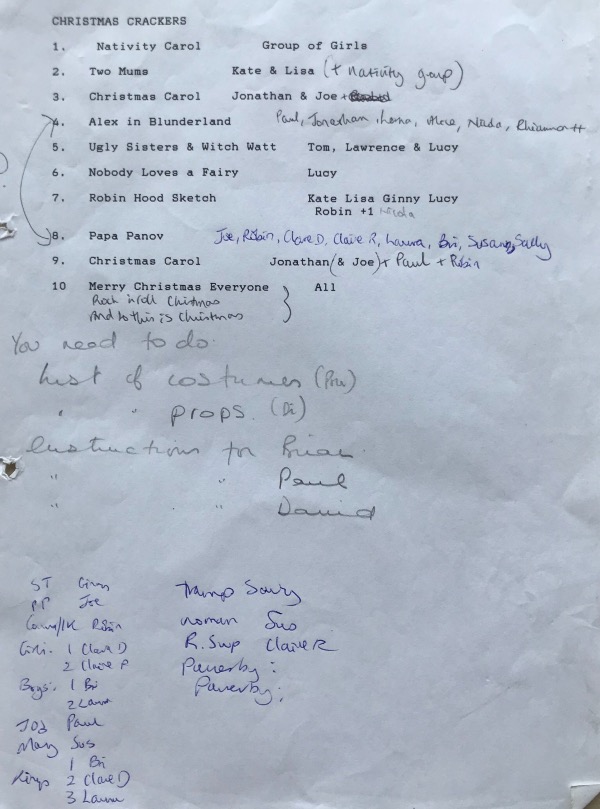 CHRISTMAS CRACKERS
1. Nativity Carol Group of Girls
2. Two Mums Kate & Lisa (+ nativity group)
3. Christmas Carol Jonathan & Joe +
4. Alex in Blunderland Paul, Jonathan, Lorna, Alexe, Nikda, Rhiannon H
5. Ugly Sisters & Witch Watt Tom, Lawrence & Lucy
6. Nobody Loves a Fairy Lucy
7. Robin Hood Sketch Kate Lisa Ginny Lucy
Robin +1 Nikda
8. Papa Panov Joe, Robin, Clare D, Claire R, Laura, Bri, Susan, Sally
9. Christmas Carol Jonathan (& Joe) + Paul + Robin
10 Merry Christmas Everyone All
Rock 'n roll Christmas
And so this is Christmas
You need to do:
List of costumes (Pru)
" " props. (Di)
Instructions for Brian
" " Paul
" " David
ST Ginny
PP Joe
Robin
Girls. 1 Clare D
2 Claire R
Boys. 1 Bri
2 Laura
Jos Paul
Mary Sus
1 Bri
Kings 2 Clare D
3 Laura
Tramp Sally
woman Sus
R. Swp Claire R
Passerby:
Passerby: